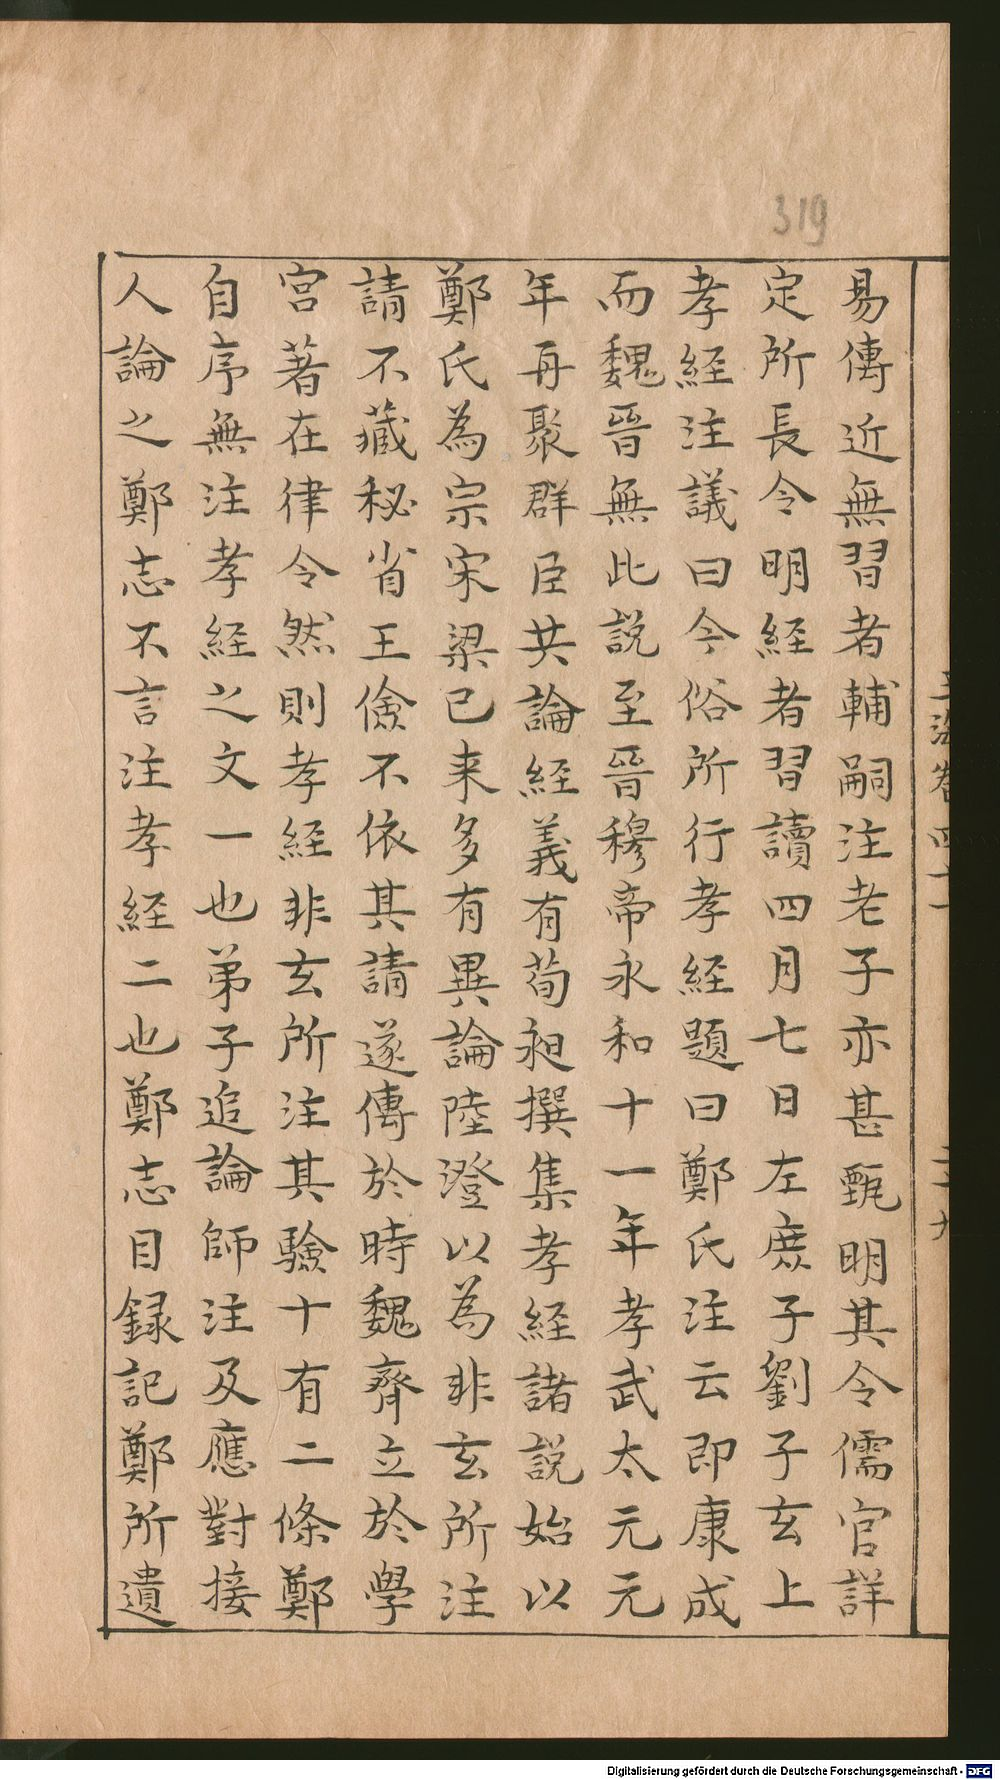 319
易傳近無習者輔嗣注老子亦甚甄明其令儒官詳
定所長令明經者習讀四月七日左庶子劉子玄上
孝經注議曰今俗所行孝經題曰鄭氏注云即康成
而魏晉無此說至晉穆帝永和十一年孝武太元元
年再聚群臣共論經義有荀昶撰集孝經諸説始以
鄭氏為宗宋梁已来多有異論陸澄以為非玄所注
請不藏秘省王儉不依其請遂傳於時魏齊立於學
宮著在律令然則孝經非玄所注其驗十有二條鄭
自序無注孝經之文一也弟子追論師注及應對接
人論之鄭志不言注孝經二也鄭志目録記鄭所遺
Digitalisierung gefördert durch die Deutsche Forschungsgemeinschaft - DFG